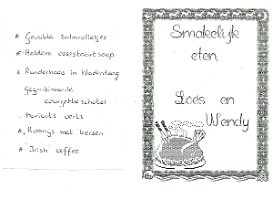 * Gevulde zalmrolletjes
* Heldere ossestaartsoep
* Runderhaas in bladerdeeg
Gegratineerde
courgetteschotel
haricots verts
* Roomijs met kersen
* Irish coffee
Smakelijk
eten
Loes en
Wendy